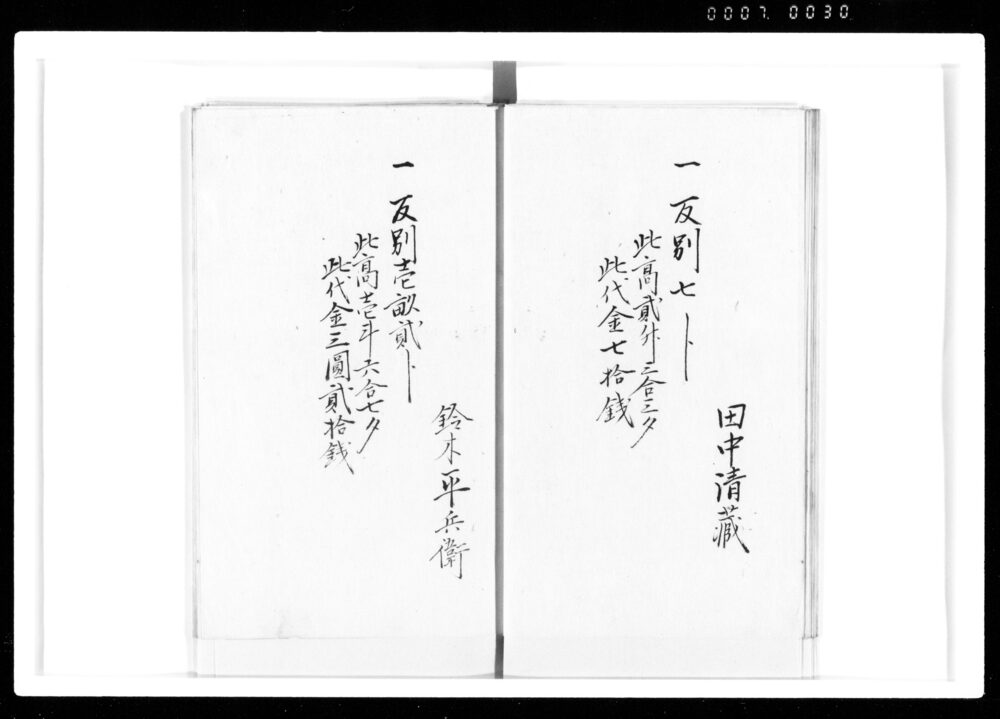 0007 0030
田中清蔵
一反別七卜
此高貳升三合三夕
此代金七拾銭
鈴木平兵衛
一反別壱畝貳卜
此高壱斗六合七夕
此代金三圓貳拾銭